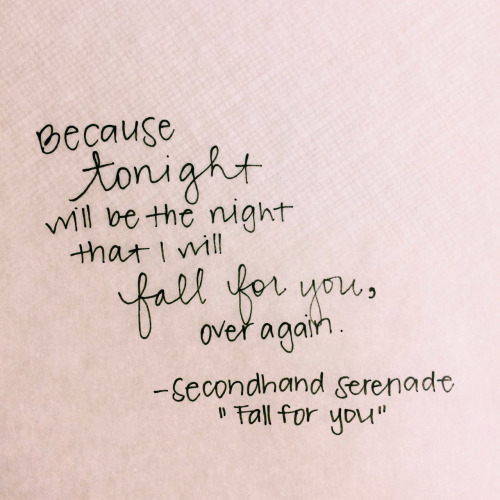 Because
tonight
will be the night
that I will
fall for you,
over again.
-secondhand serenade
"Fall for you"